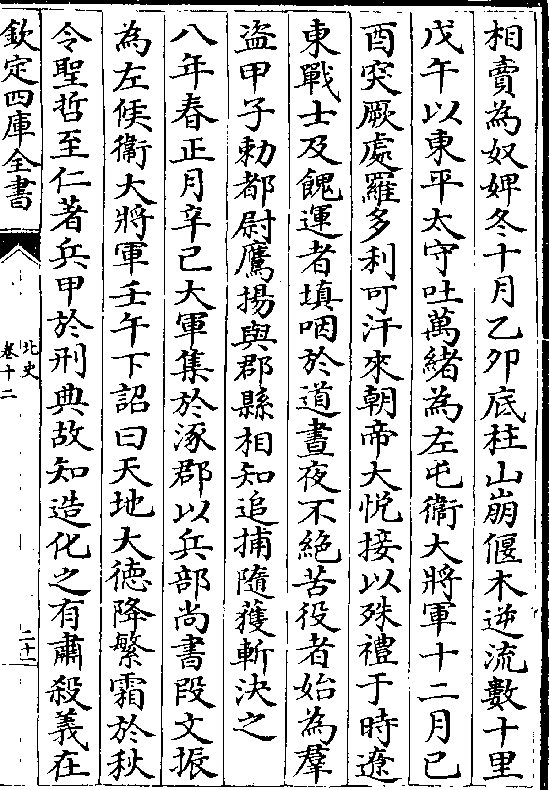 相賣為奴婢冬十月乙卯底柱山崩偃木逆流數十里
戊午以東平太守吐萬緒為左屯衞大將軍十二月己
酉突厥處羅多利可汗來朝帝大悦接以殊禮于時遼
東戰士及餽運者填咽於道晝夜不絶苦役者始為羣
盗甲子勅都尉鷹揚與郡縣相知追捕隨獲斬決之
八年春正月辛巳大軍集於涿郡以兵部尚書段文振
為左候衞大將軍壬午下詔曰天地大徳降繁霜於秋
令聖哲至仁著兵甲於刑典故知造化之有肅殺義在
欽定四庫全書
北史
卷十二
二十二